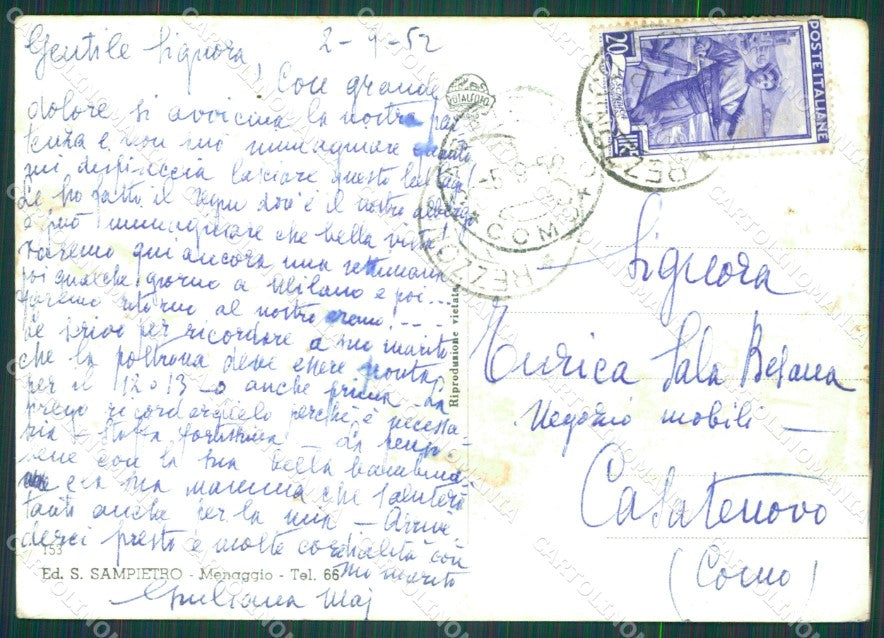 Gentile Signora, 2-9-52
Con grande
dolore si avvicina la nostra par
tenza e non può immaginare quanto
mi dispiaccia lasciare questo bel lago!
Le ho fatto il segno dov'è il nostro albergo
e può immaginare che bella vista!
Staremo qui ancora una settimana
poi qualche giorno a Milano e poi...
faremo ritorno al nostro eremo....
Le scrivo per ricordare a suo marito
che la poltrona deve essere pronta
per il 12 o 13 - o anche prima - La
prego ricordarglielo perchè è necessa-
ria - stoffa fortissima - La penso
bene con la sua bella bambina
e la sua mamma che saluterà
tanto anche per la mia - Arrive-
derci presto e molte cordialità con
suo marito
Giuliana Maj
153
Ed. S. SAMPIETRO - Menaggio - Tel. 66
Riproduzione vietata
FOTALCOLOR
REZZONICO
* COMO *
20
LIRE
POSTE ITALIANE
Signora
Enrica Sala Besana
Negozio mobili -
Casatenovo
(Como)
CARTOLINOMANIA